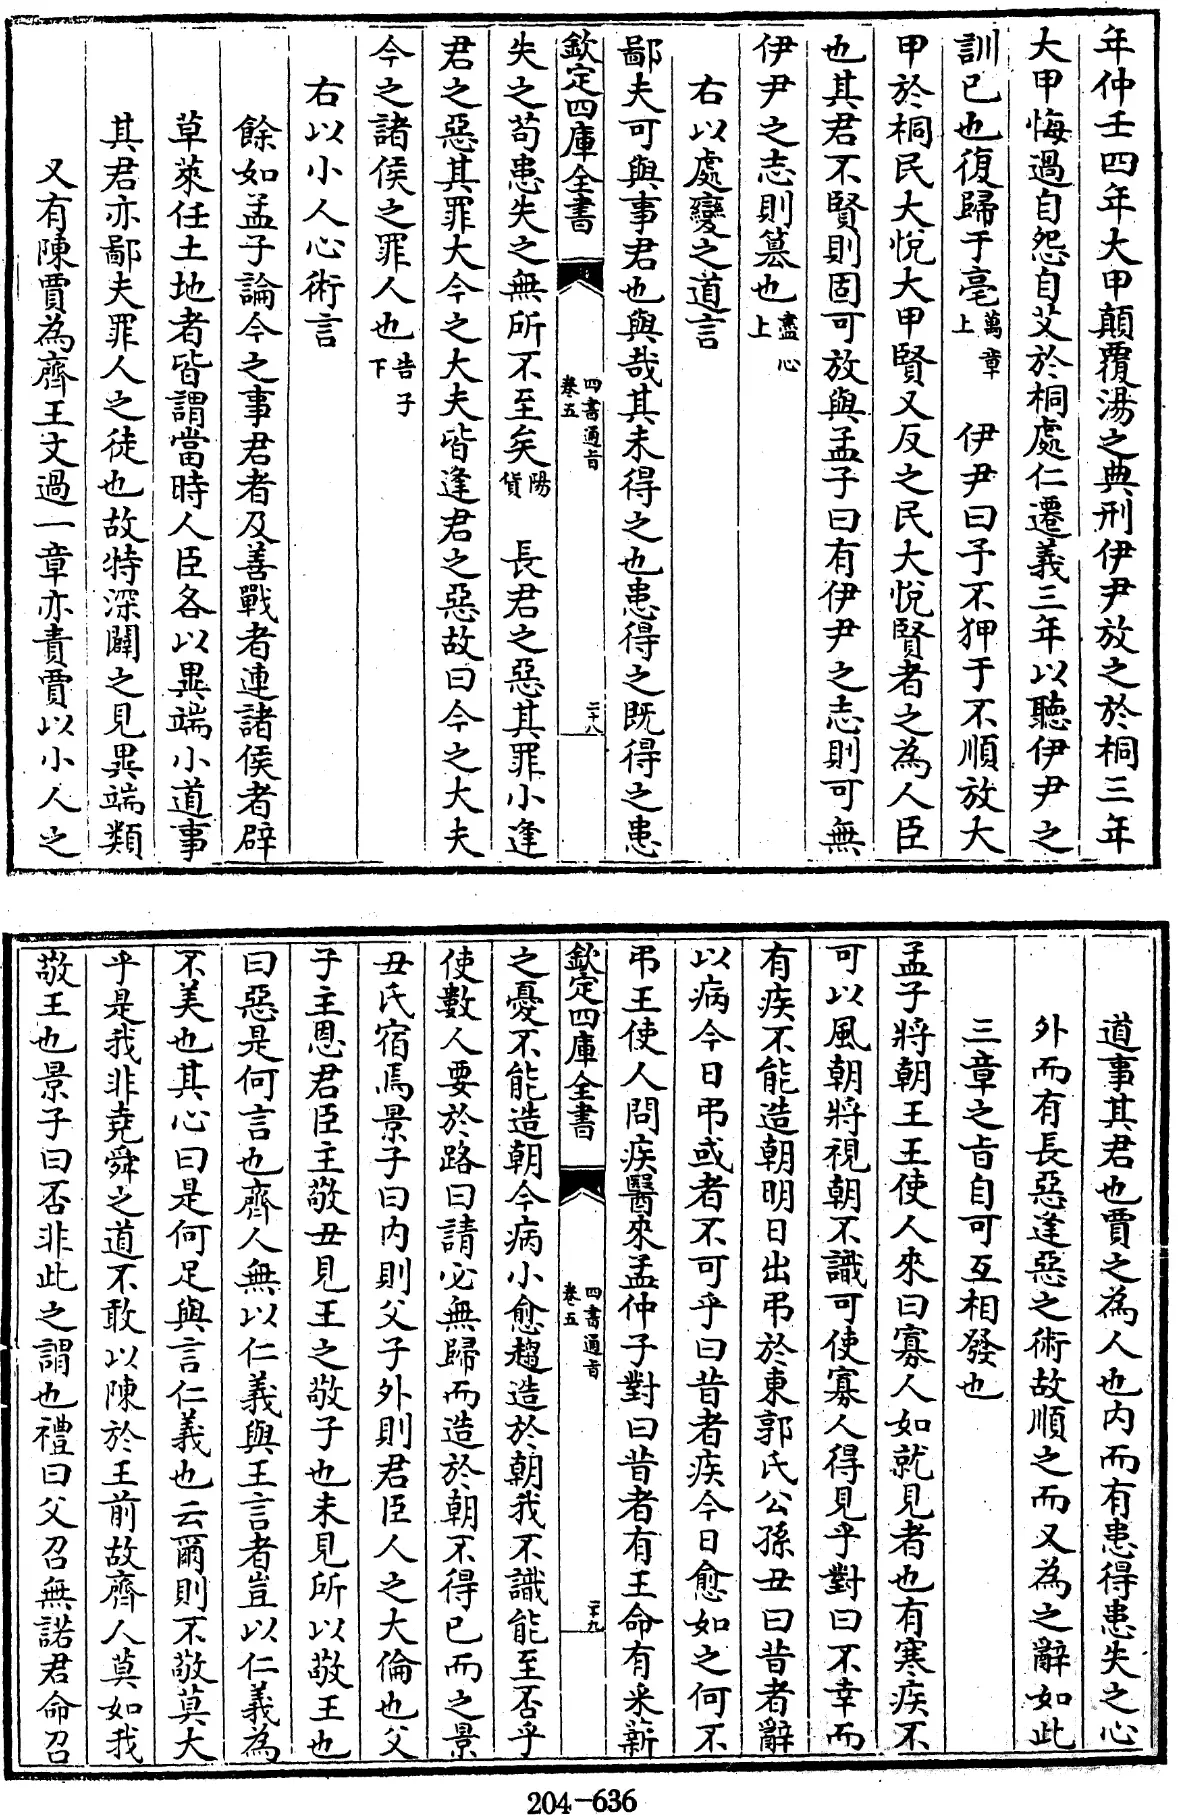 年仲壬四年大甲顛覆湯之典刑伊尹放之於桐三年
大甲悔過自怨自艾於桐處仁遷義三年以聽伊尹之
訓已也復歸于亳萬章上　伊尹曰予不狎于不順放大
甲於桐民大悅大甲賢又反之民大悅賢者之為人臣
也其君不賢則固可放與孟子曰有伊尹之志則可無
伊尹之志則簒也盡心上
右以處變之道言
鄙夫可與事君也與哉其未得之也患得之既得之患
欽定四庫全書
四書通旨
卷五
二十八
失之苟患失之無所不至矣陽貨　長君之惡其罪小逢
君之惡其罪大今之大夫皆逢君之惡故曰今之大夫
今之諸侯之罪人也告子下
右以小人心術言
餘如孟子論今之事君者及善戰者連諸侯者辟
草萊任土地者皆謂當時人臣各以異端小道事
其君亦鄙夫罪人之徒也故特深闢之見異端類
又有陳賈為齊王文過一章亦責賈以小人之
道事其君也賈之為人也内而有患得患失之心
外而有長惡逢惡之術故順之而又為之辭如此
三章之旨自可互相發也
孟子將朝王王使人來曰寡人如就見者也有寒疾不
可以風朝將視朝不識可使寡人得見乎對曰不幸而
有疾不能造朝明日出弔於東郭氏公孫丑曰昔者辭
以病今日弔或者不可乎曰昔者疾今日愈如之何不
弔王使人問疾醫來孟仲子對曰昔者有王命有采薪
欽定四庫全書
四書通旨
卷五
二十九
之憂不能造朝今病小愈趨造於朝我不識能至否乎
使數人要於路曰請必無歸而造於朝不得已而之景
丑氏宿焉景子曰内則父子外則君臣人之大倫也父
子主恩君臣主敬丑見王之敬子也未見所以敬王也
曰惡是何言也齊人無以仁義與王言者豈以仁義為
不美也其心曰是何足與言仁義也云爾則不敬莫大
乎是我非堯舜之道不敢以陳於王前故齊人莫如我
敬王也景子曰否非此之謂也禮曰父召無諾君命召
204-636